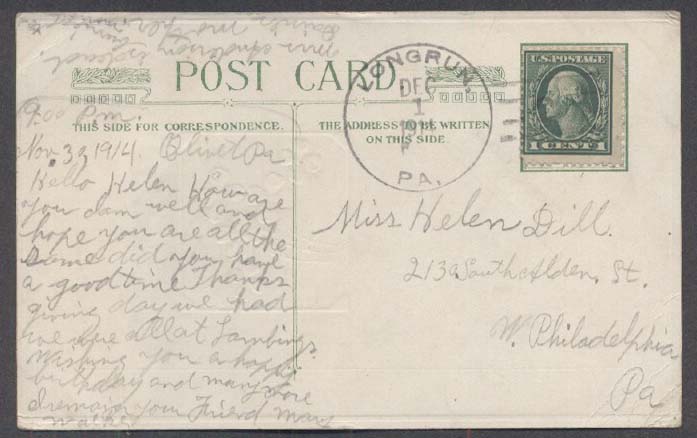 Mrs Anderson is dead.
POST CARD
THIS SIDE FOR CORRESPONDENCE.
THE ADDRESS TO BE WRITTEN
ON THIS SIDE
LONGRUN,
DEC
1
PA.
U.S. POSTAGE
1 CENT 1
9:00 P.m.
Nov. 30 1914. Olivet Pa
Hello Helen How are
you I am well and
hope you are all the
same did you have
a good time Thanks
giving day we had
we were All at Lambings.
Wishing you a happy
birthday and many more
I remain your Friend Mary
Walker
Miss Helen Dill.
213 South Alden. St.
W. Philadelphia
Pa